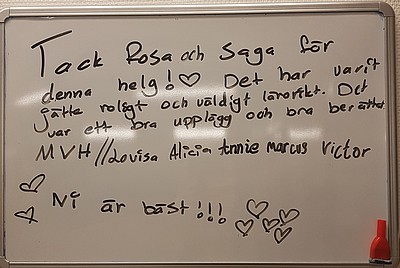 Tack Rosa och Saga för
denna helg! ♡ Det har varit
jätte roligt och väldigt lärorikt. Det
var ett bra upplägg och bra berättat
MVH // Lovisa Alicia Annie Marcus Victor
Ni är bäst!!!